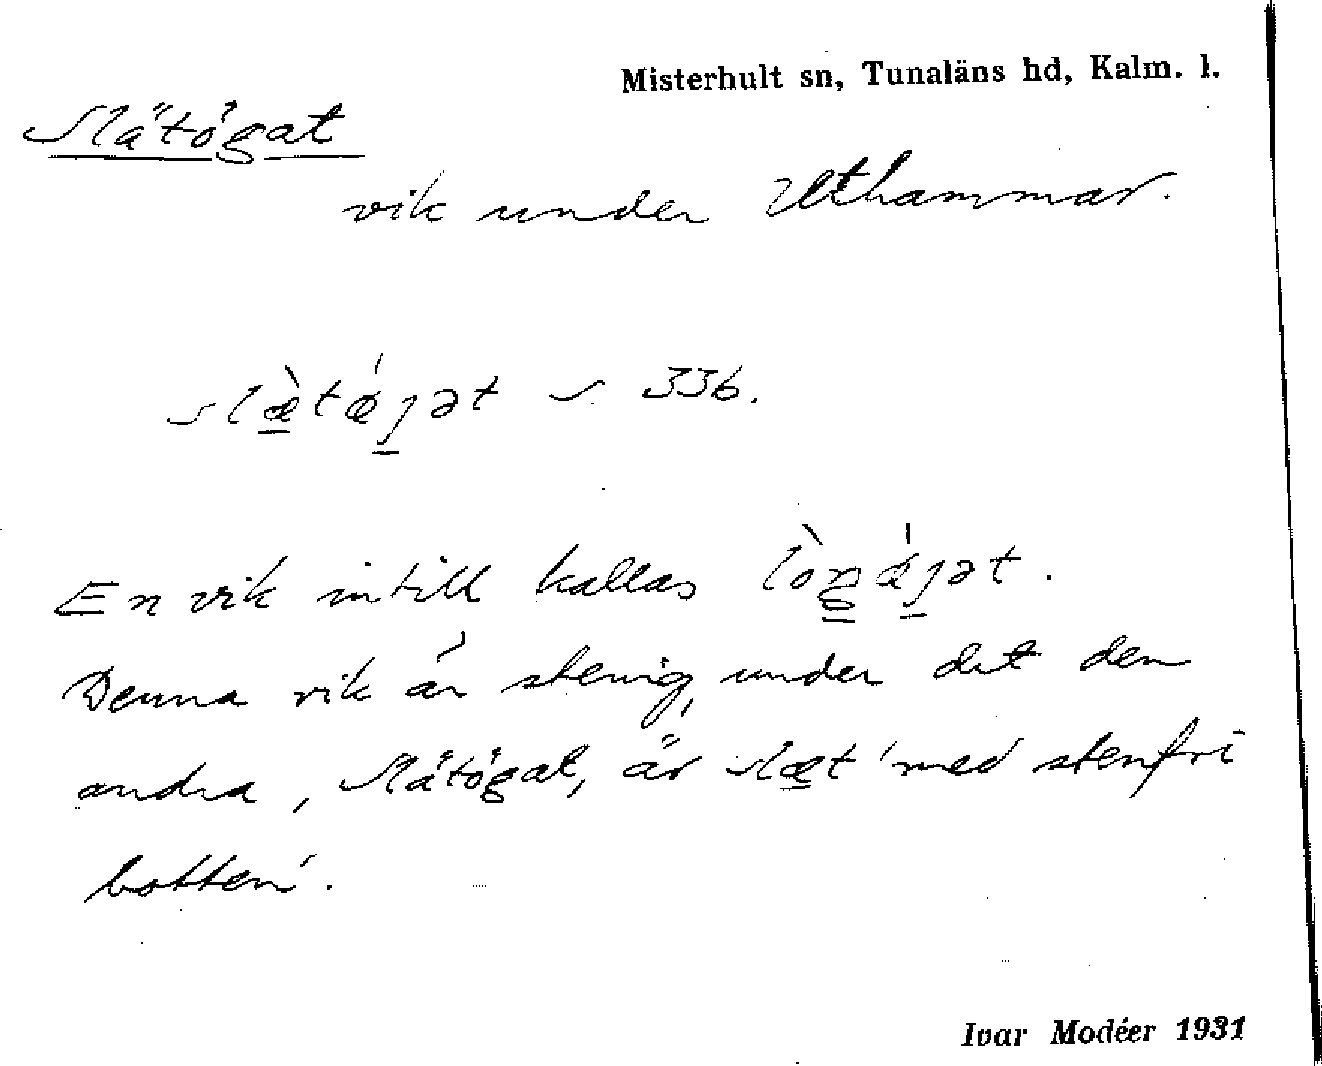 Misterhult sn, Tunaläns hd, Kalm. l.
Slätögat
vik under Uthammar.
slæ̀tǿȷət s. 336.
En vik intill kallas lòŋǿȷət.
Denna vik är stenig, under det den
andra, Slätögat, är slæt 'med stenfri
botten'.
Ivar Modéer 1931